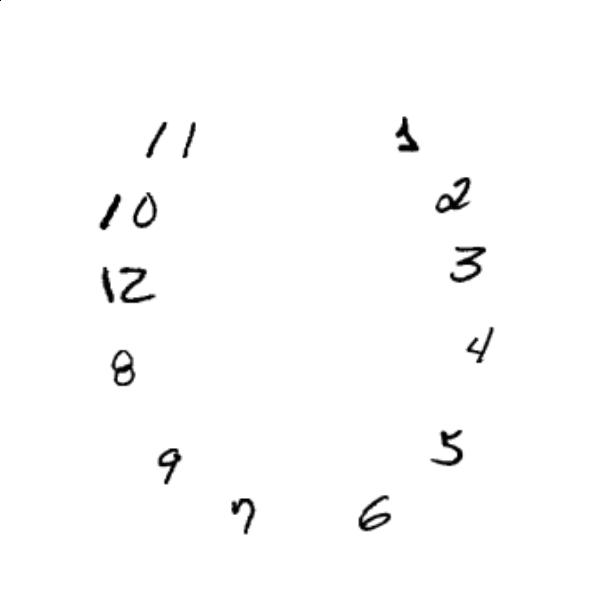 11 1
10 2
12 3
8 4
9 5
7 6